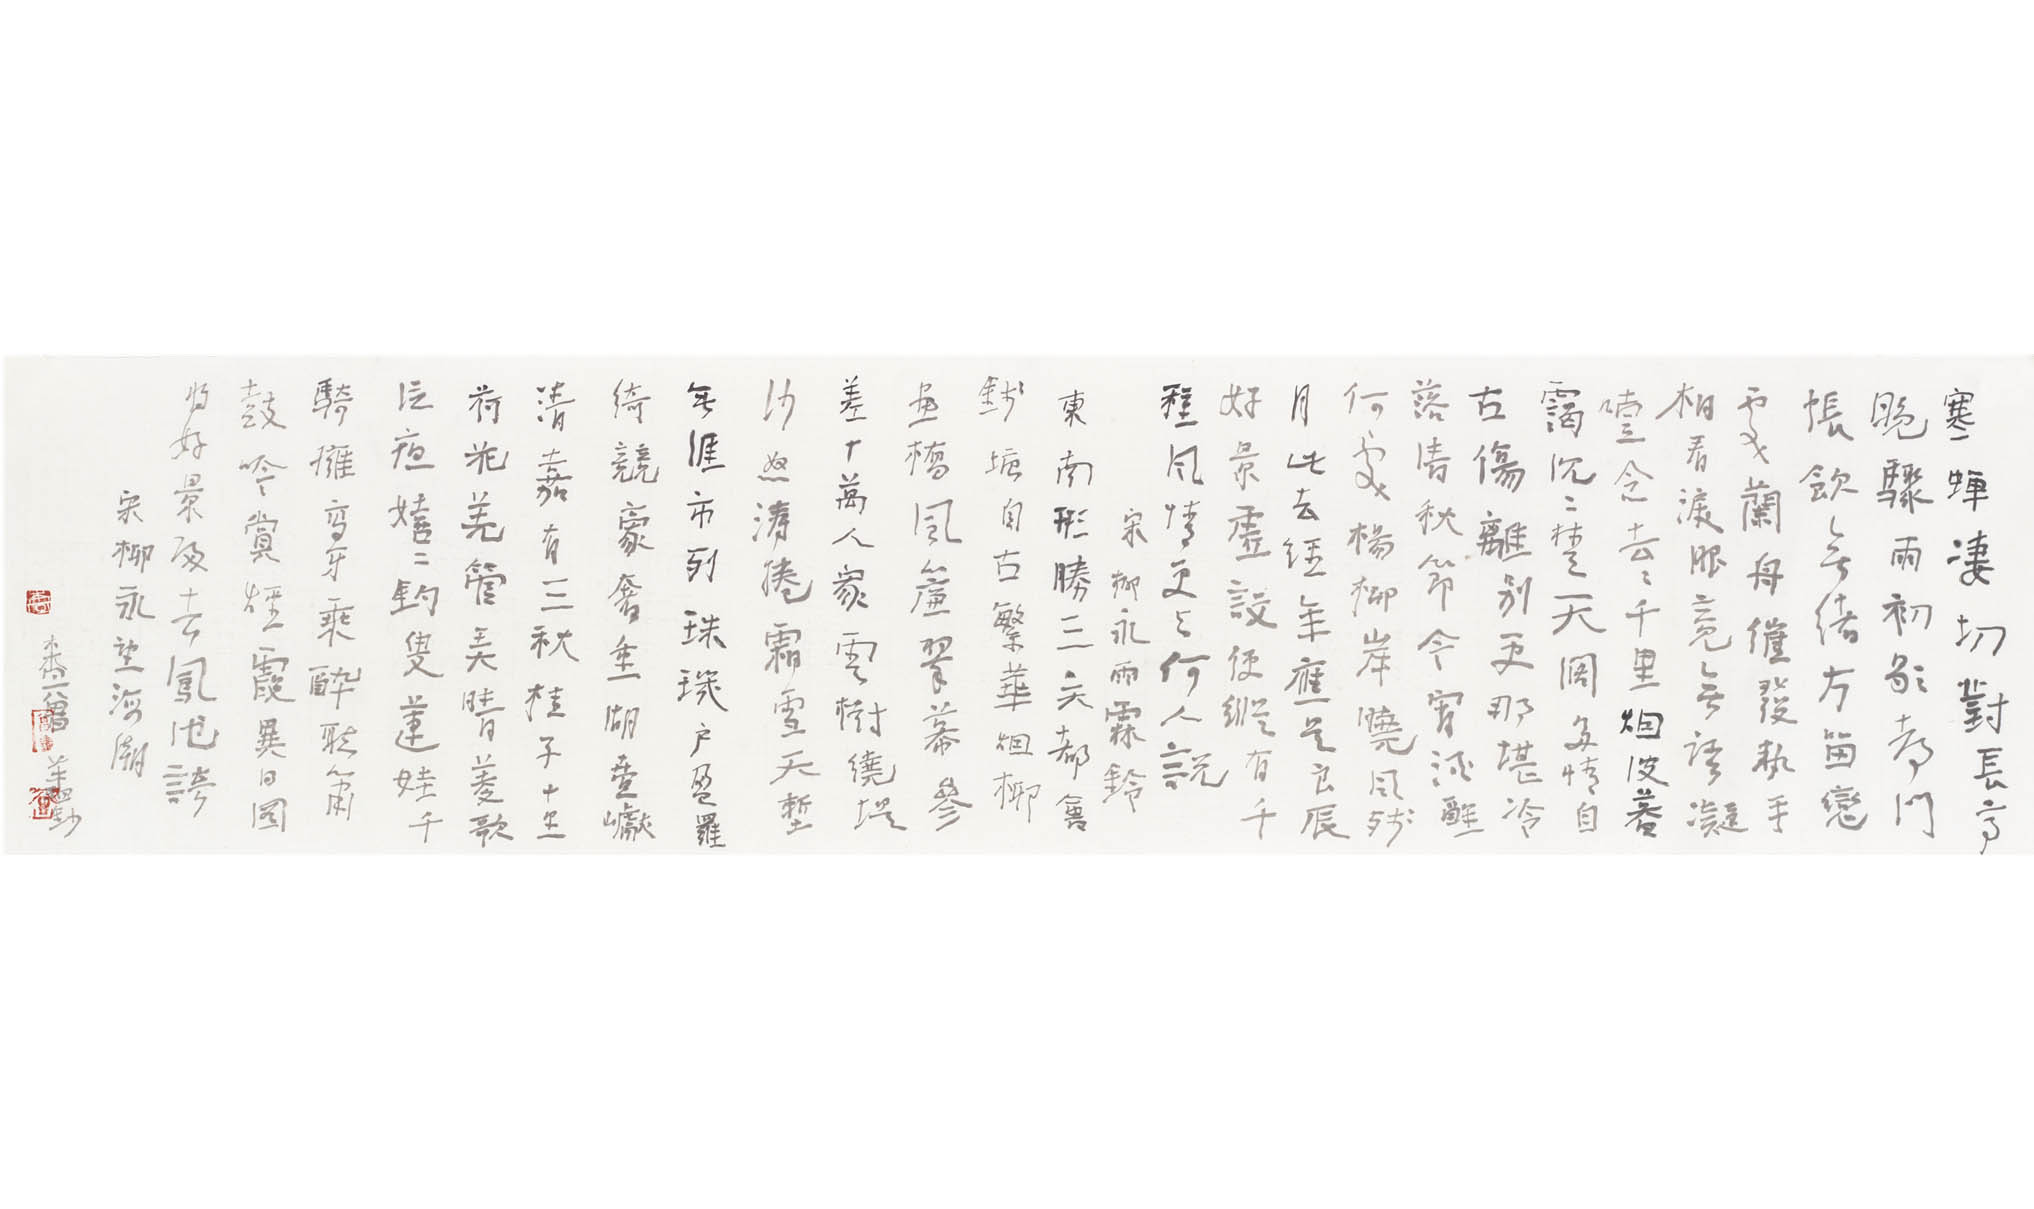 寒蟬凄切對長亭
晚驟雨初歇都門
帳飲無緒方留戀
處蘭舟催發執手
相看淚眼竟無語凝
噎念去々千里烟波暮
靄沉〻楚天闊多情自
古傷離別更那堪冷
落清秋節今宵酒醒
何處楊柳岸曉風殘
月此去經年應是良辰
好景虛設便縱有千
種風情更與何人說
宋柳永雨霖鈴
東南形勝三吳都會
錢塘自古繁華烟柳
畫橋風簾翠幕參
差十萬人家雲樹繞堤
沙怒濤捲霜雪天塹
無涯市列珠璣戶盈羅
綺競豪奢重湖疊巘
清嘉有三秋桂子十里
荷花羌管弄晴菱歌
泛夜嬉〻釣叟蓮娃千
騎擁高牙乘醉聽簫
鼓吟賞煙霞異日圖
將好景歸去鳳池誇
宋柳永望海潮